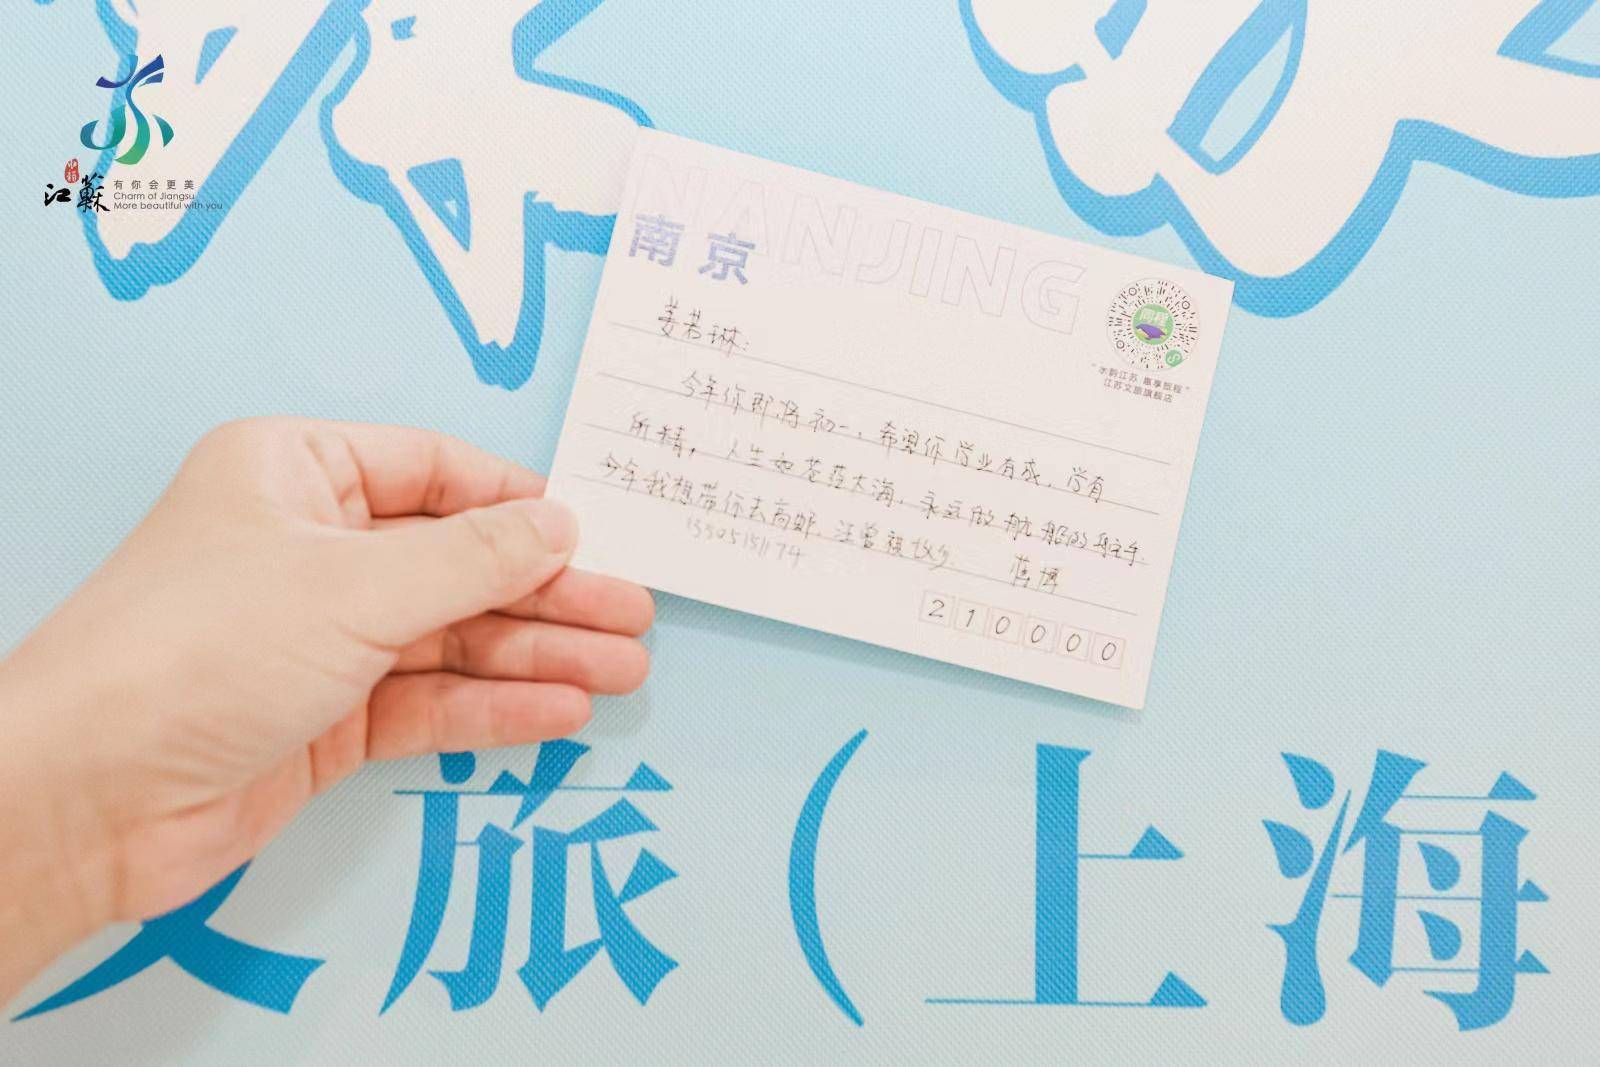 江蘇
有你会更美
Charm of Jiangsu
More beautiful with you
NANJING
南京
同程
"水韵江苏 惠享旅程"
江苏文旅旗舰店
姜若琳:
今年你即将初一,希望你学业有成,学有
所精,人生如苍茫大海,永远做航船的舵手.
今年我想带你去高邮,汪曾祺故乡. 蒋博
13505151174
210000
文旅(上海